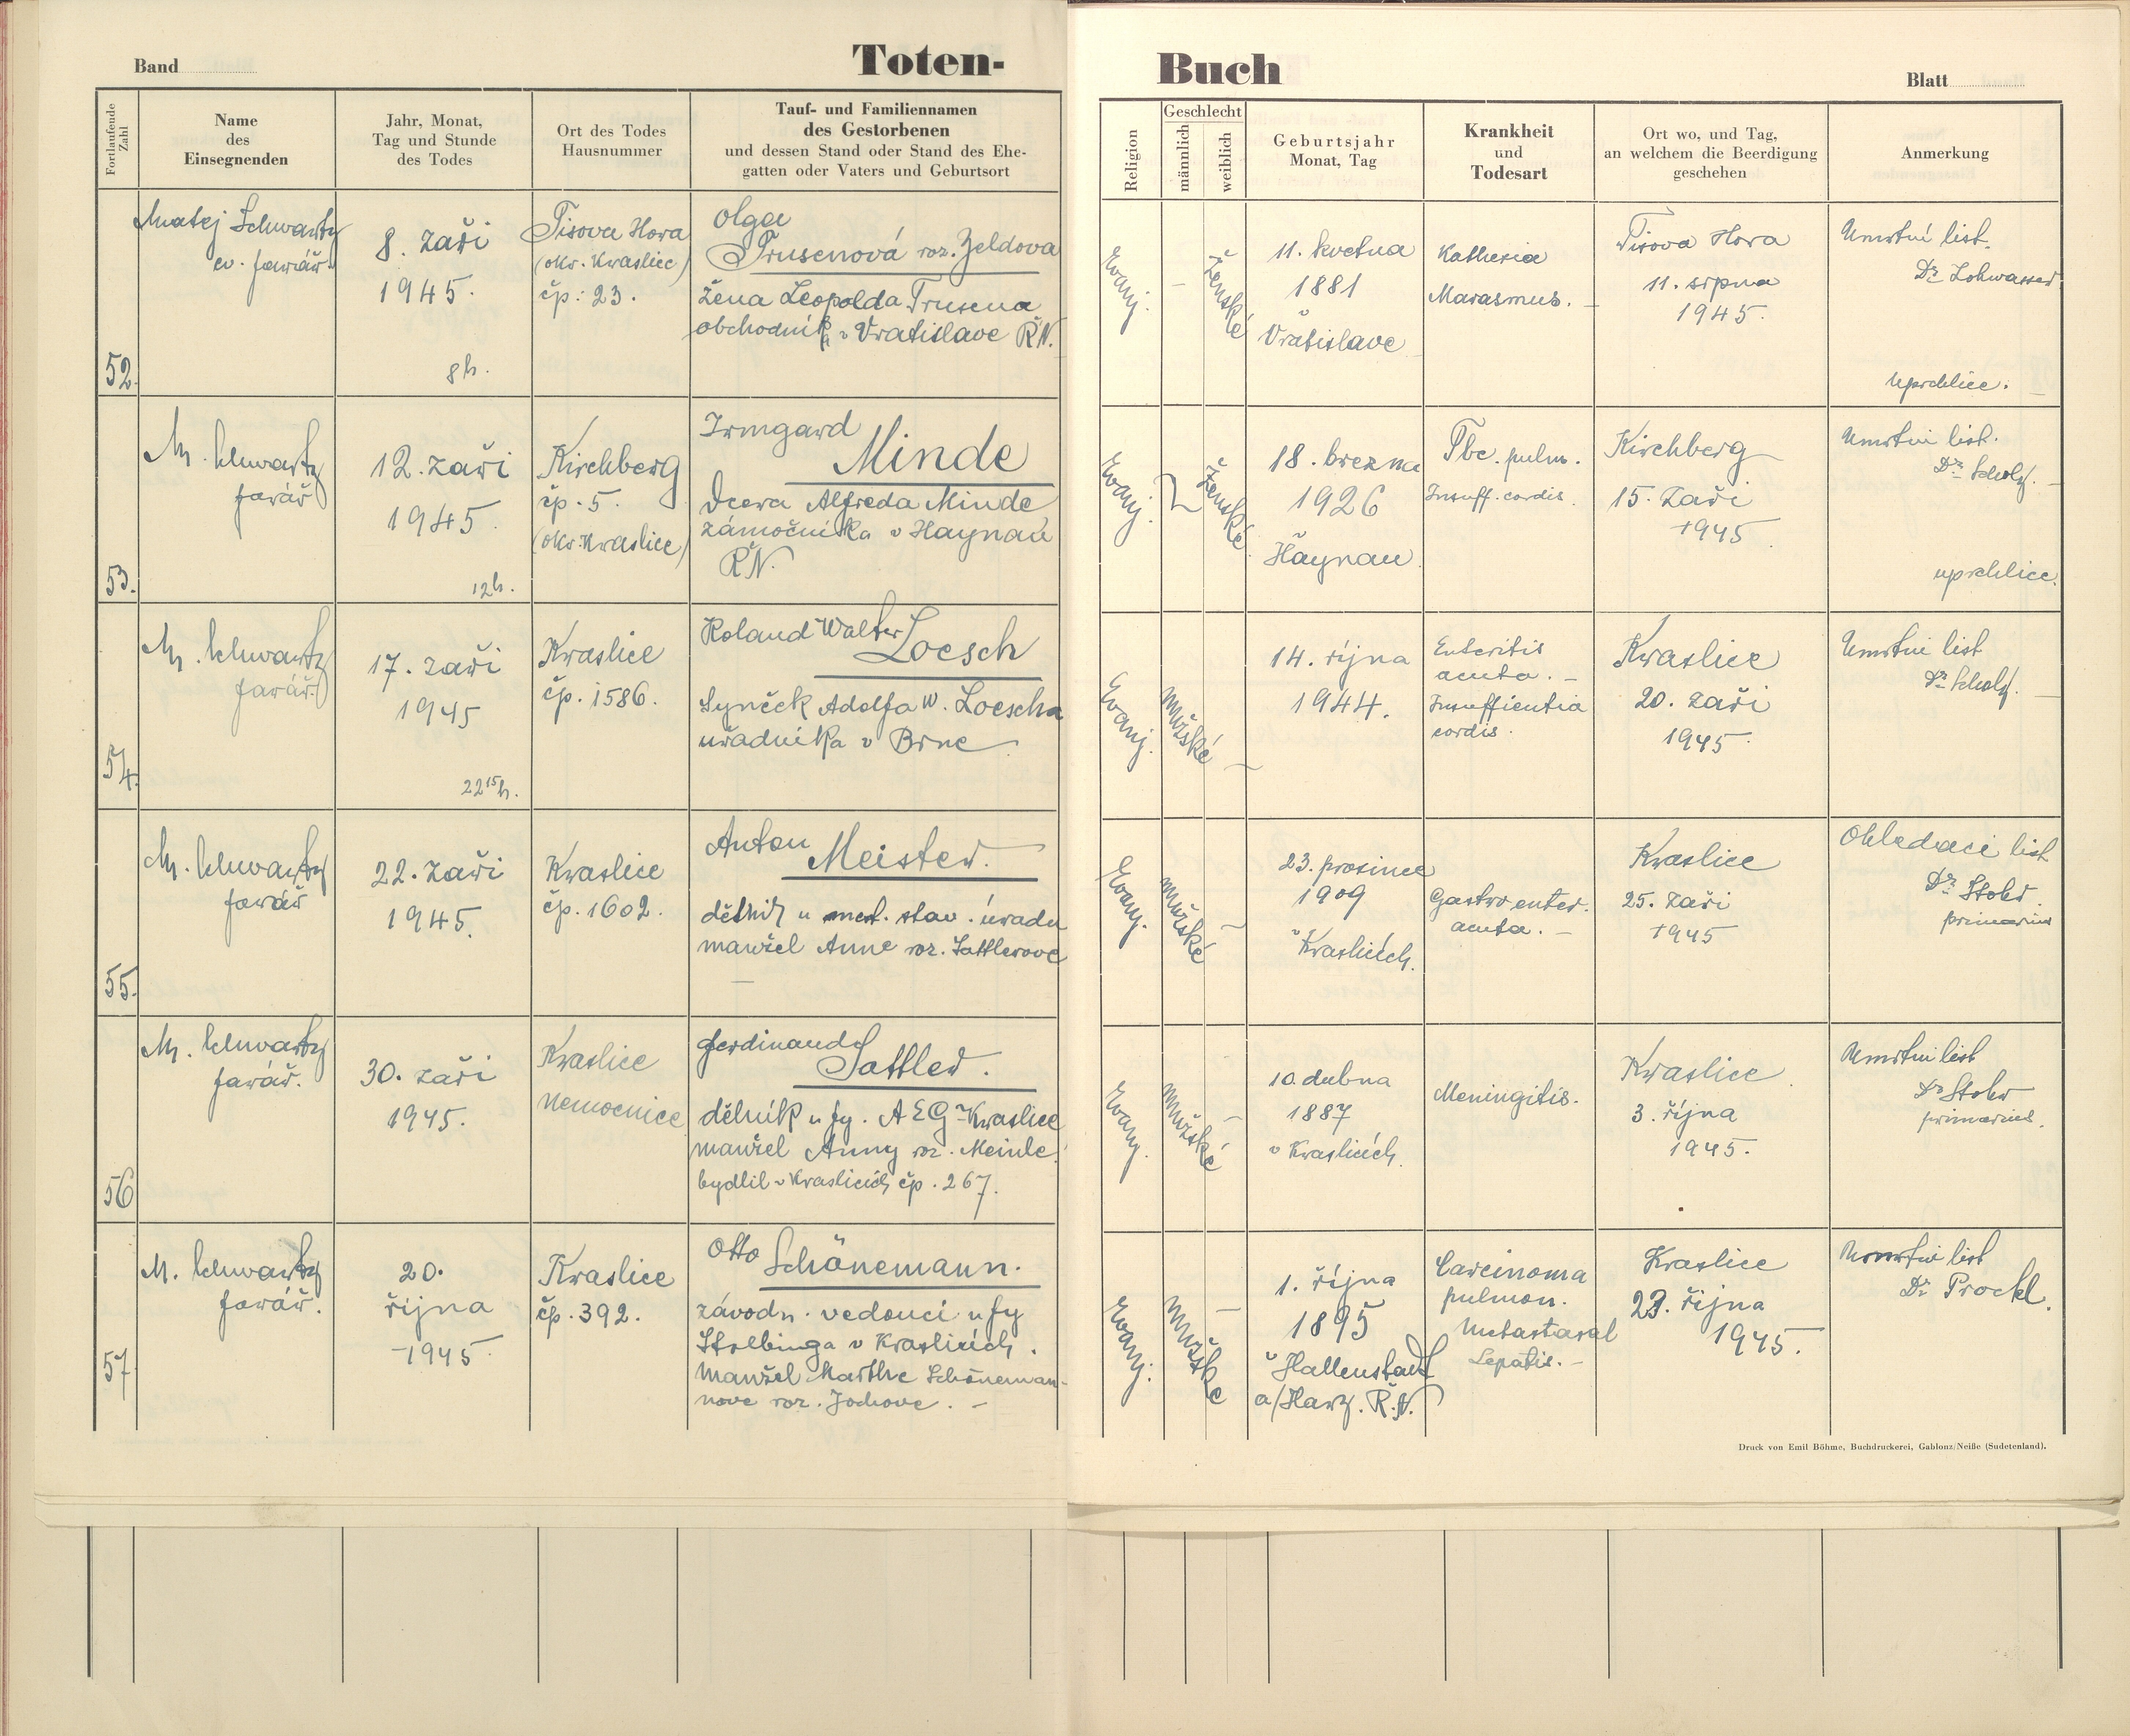 Band
Toten-
Buch
Blatt
Fortlaufende Zahl
Name
des
Einsegnenden
Jahr, Monat,
Tag und Stunde
des Todes
Ort des Todes
Hausnummer
Tauf- und Familiennamen
des Gestorbenen
und dessen Stand oder Stand des Ehe-
gatten oder Vaters und Geburtsort
Religion
Geschlecht
männlich
weiblich
Geburtsjahr
Monat, Tag
Krankheit
und
Todesart
Ort wo, und Tag,
an welchem die Beerdigung
geschehen
Anmerkung
52.
Matej Schwartz
ev. farář.
8. zaři
1945.
8h.
Tisova Hora
(okr. Kraslice)
čp: 23.
Olga
Trusenová roz. Zeldova
žena Leopolda Trusena
v Vratislave ŘN.
Evanj.
–
Ženské
11. kvetna
1881
v
Vratislave
Kathexia
Marasmus. –
Tisova Hora
11. srpna
1945.
Umrtní list.
Dr Lohwasser.
uprchlice. –
53.
M. Schwartz
farář
12. zaři
1945.
12h.
Kirchberg
čp. 5.
(okr. Kraslice)
Irmgard
Minde
Dcera Alfreda Minde
zámočníka v Haynau
ŘN.
Evanj.
Ženské
18. brezna
1926
v Haynau
Tbc. pulm.
Insuff. cordis.
Kirchberg
15. Zaři
1945.
Umrtni list.
Dr Scholz. –
uprchlice.
54.
M. Schwartz
farář.
17. zaři
1945
22 15 h.
Kraslice
čp. 1586.
Roland Walter
Loesch
Syneček Adolfa W. Loescha
uřadníka v Brne
Evanj.
Mužské
–
14. října
1944.
Enteritis
acuta. –
Insufficientia
cordis.
Kraslice
20. zaři
1945.
Umrtni list
Dr Scholz. –
55.
M. Schwartz
farář
22. zaři
1945.
Kraslice
čp. 1602.
Anton
Meister.
dělník u mest. stav. úradu
manžel Anne roz. Sattlerove
–
Evanj.
Mužské
–
23. prosince
1909
v Kraslicích.
Gastro enter.
acuta. –
Kraslice
25. zaři
1945
Ohledaci list
Dr Stohr.
primarius
56
M. Schwartz
farář.
30. zaři
1945.
Kraslice
nemocnice
Ferdinand
Sattler.
dělník u fy. AEG-Kraslice
manžel Anny roz. Meinle.
bydlil v Kraslicích čp. 267.
Evanj.
Mužské
–
10. dubna
1887
v Kraslicích.
Meningitis.
Kraslice.
3. října
1945.
Umrtni list
Dr Stohr
primarius.
57
M. Schwartz
farář.
20.
října
1945.
Kraslice
čp. 392.
Otto
Schönemann.
závodn. vedoucí u fy
v Kraslicích.
manžel Marthe Schöneman-
nove roz. Jochove. –
Evanj.
Mužské
–
1. října
1895
v Hallenstadt
a/Harz. Ř.N.
Carcinoma
pulmon.
Metastasal
Lepatis. –
Kraslice
23. října
1945.
Umrtni list
Dr Prockl.
Druck von Emil Böhme, Buchdruckerei, Gablonz/Neiße (Sudetenland).